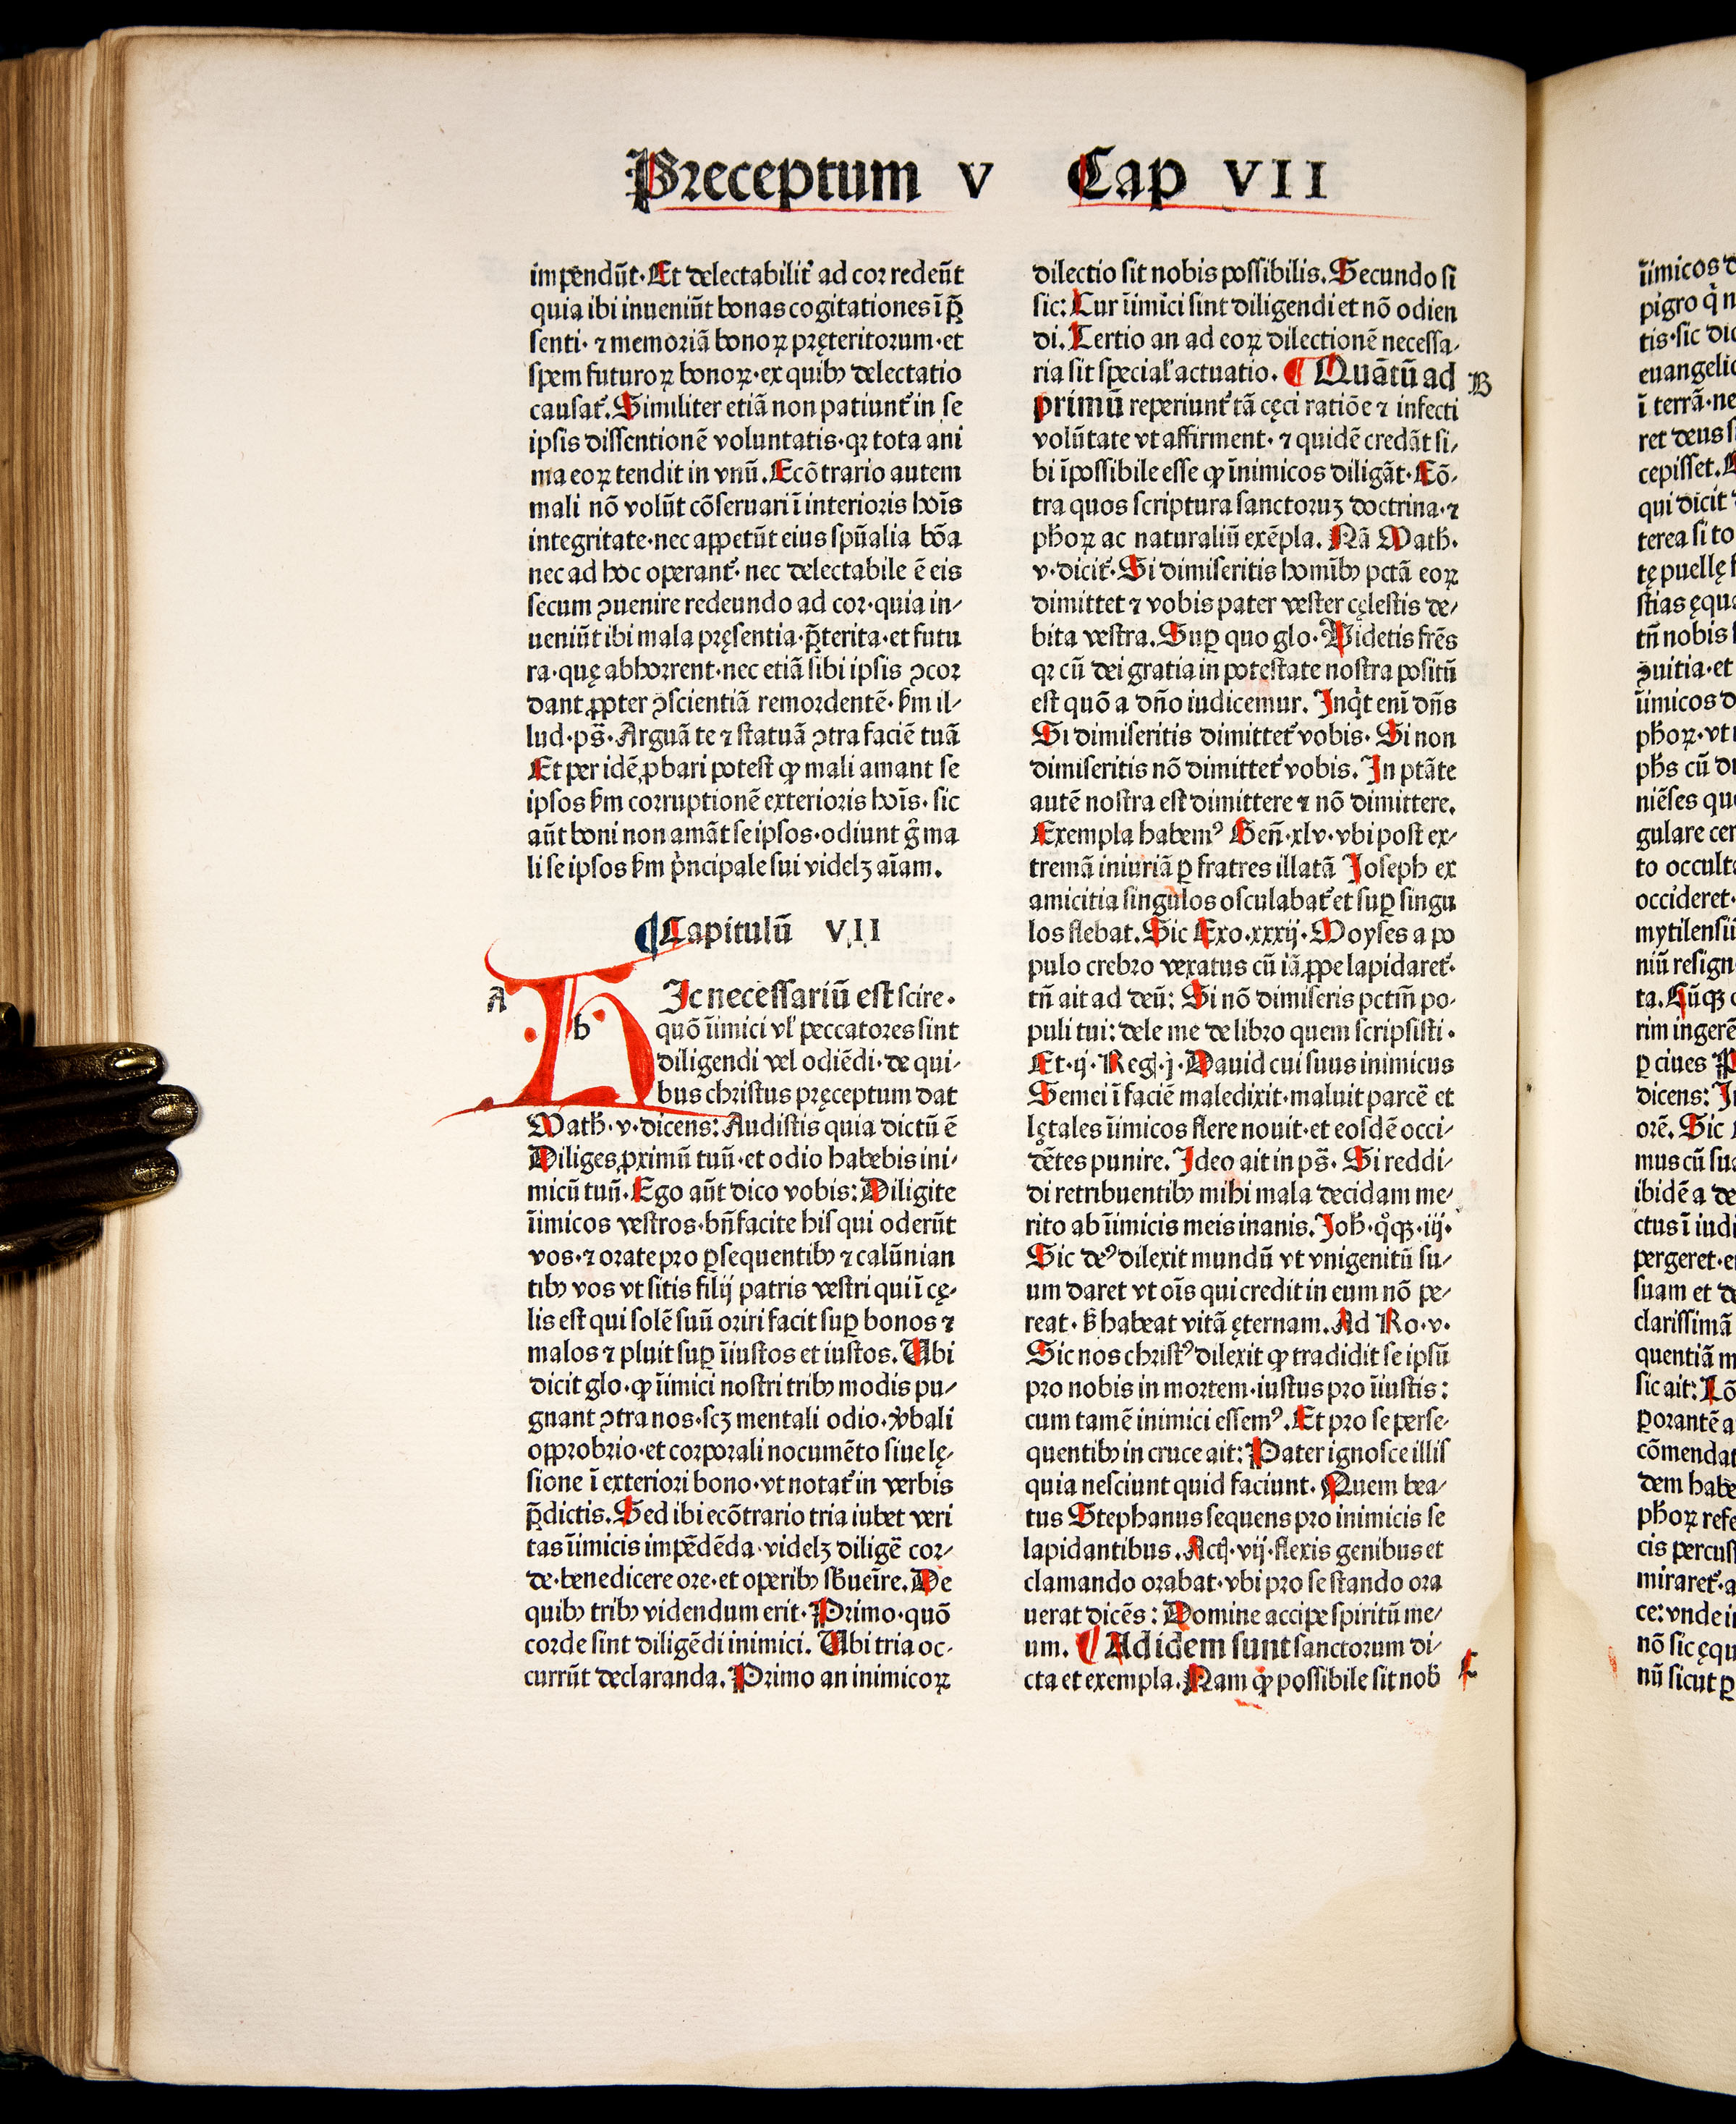 Preceptum V Cap VII
impēndūt·Et delectabilit᷑ ad cor redeūt
quia ibi inueniūt bonas cogitationes ī p̄
senti· ⁊ memoriā bonoꝝ pręteritorum·et
spem futuroꝝ bonoꝝ·ex quibꝰ delectatio
causat᷑. Similiter etiā non patiunt᷑ in se
ipsis dissentionē voluntatis·qꝛ tota ani
ma eoꝝ tendit in vnū. Ecōtrario autem
mali nō volūt cōseruari ī interioris hoīs
integritate·nec appetūt eius spūalia bōa
nec ad hoc operant᷑· nec delectabile ē eis
secum ꝯuenire redeundo ad cor·quia in⸗
ueniūt ibi mala pręsentia·p̄terita·et futu
ra·quę abhorrent·nec etiā sibi ipsis ꝯcor
dant ꝓpter ꝯscientiā remordentē· ẜm il⸗
lud·ps̄·Arguā te ⁊ statuā ꝯtra faciē tuā
Et per idē ꝓbari potest ꝙ mali amant se
ipsos ẜm corruptionē exterioris hoīs· sic
aūt boni non amāt se ipsos·odiunt g̊ ma
li se ipsos ẜm pͥncipale sui videlꝫ aīam.
¶Capitulū VII
A
H
h
Ic necessariū est scire·
quō īimici vl̓ peccatores sint
diligendi vel odiēdi·de qui⸗
bus christus pręceptum dat
Math̄·v·dicens: Audistis quia dictū ē
Diliges ꝓximū tuū·et odio habebis ini⸗
micū tuū. Ego aūt dico vobis: Diligite
īimicos vestros·bn̄facite his qui oderūt
vos·⁊ orate pro ꝑsequentibꝰ ⁊ calūnian
tibꝰ vos vt sitis filij patris vestri qui ī cę⸗
lis est qui solē suū oriri facit suꝑ bonos ⁊
malos ⁊ pluit suꝑ īiustos et iustos. Ubi
dicit glo·ꝙ īimici nostri tribꝰ modis pu⸗
gnant ꝯtra nos·scꝫ mentali odio·v̓bali
opprobrio·et corporali nocumēto siue lę⸗
sione ī exteriori bono·vt notat᷑ in verbis
p̄dictis. Sed ibi ecōtrario tria iubet veri
tas īimicis impēdēda·videlꝫ diligē cor⸗
de·benedicere ore·et operibꝰ sb̄ueīre. De
quibꝰ tribꝰ videndum erit· Primo·quō
corde sint diligēdi inimici. Ubi tria oc⸗
currūt declaranda. Primo an inimicoꝝ
dilectio sit nobis possibilis. Secundo si
sic: Cur īimici sint diligendi et nō odien
di. Tertio an ad eoꝝ dilectionē necessa⸗
ria sit special̓ actuatio. ¶ Quātū ad
B
primū reperiunt᷑ tā cęci ratiōe ⁊ infecti
volūtate vt affirment· ⁊ quidē credāt si⸗
bi īpossibile esse ꝙ īnimicos diligāt· Cō⸗
tra quos scriptura sanctoruꝫ doctrina·⁊
ph̄oꝝ ac naturaliū exēpla. Nā Math·
v·dicit᷑· Si dimiseritis homībꝰ pctā eoꝝ
dimittet ⁊ vobis pater vester cęlestis de⸗
bita vestra. Suꝑ quo glo· Videtis frēs
qꝛ cū dei gratia in potestate nostra positū
est quō a dn̄o iudicemur. Inqͥt eni dn̄s
Si dimiseritis dimittet᷑ vobis· Si non
dimiseritis nō dimittet᷑ vobis. In ptāte
autē nostra est dimittere ⁊ nō dimittere.
Exempla habemꝰ Gen̄·xlv·vbi post ex⸗
tremā iniuriā ꝑ fratres illatā Joseph ex
amicitia singulos osculabat᷑ et suꝑ singu
los flebat. Sic Exo·xxxij· Moyses a po
pulo crebro vexatus cū iā ꝓpe lapidaret᷑·
tn̄ ait ad deū: Si nō dimiseris pctm̄ po⸗
puli tui: dele me de libro quem scripsisti·
Et·ij·Reg·j· Dauid cui suus inimicus
Semei ī faciē maledixit·maluit parcē et
lętales īimicos flere nouit·et eosdē occi⸗
dētes punire. Ideo ait in ps̄· Si reddi⸗
di retribuentibꝰ mihi mala decidam me⸗
rito ab īimicis meis inanis. Joh̄·qͦqꝫ·iij·
Sic deꝰ dilexit mundū vt vnigenitū su⸗
um daret vt oīs qui credit in eum nō pe⸗
reat· s̓ habeat vitā ęternam. Ad Ro·v·
Sic nos christꝰ dilexit ꝙ tradidit se ipsū
pro nobis in mortem·iustus pro īiustis:
cum tamē inimici essemꝰ. Et pro se perse⸗
quentibꝰ in cruce ait: Pater ignosce illis
quia nesciunt quid faciunt. Quem bea⸗
tus Stephanus sequens pro inimicis se
lapidantibus. Act·vij·flexis genibus et
clamando orabat·vbi pro se stando ora
uerat dicēs: Domine accipe spiritū me⸗
um. ¶ Ad idem sunt sanctorum di⸗
C
cta et exempla. Nam ꝙ possibile sit nob̄
īimicos
tis·sic
cepisset.
qui dicit
terea si to
tn̄ nobis
īimicos
gulare
to occult
occideret·
ꝑ ciues
dicens:
orē. Sic
mus cū
ibidē a
ctus ī iudi
pergeret·
suam et
clarissimā
quentiā
sic ait:
ꝑorantē
cōmendat
cis percus
miraret᷑·
ce: vnde
nū sicut ꝑ